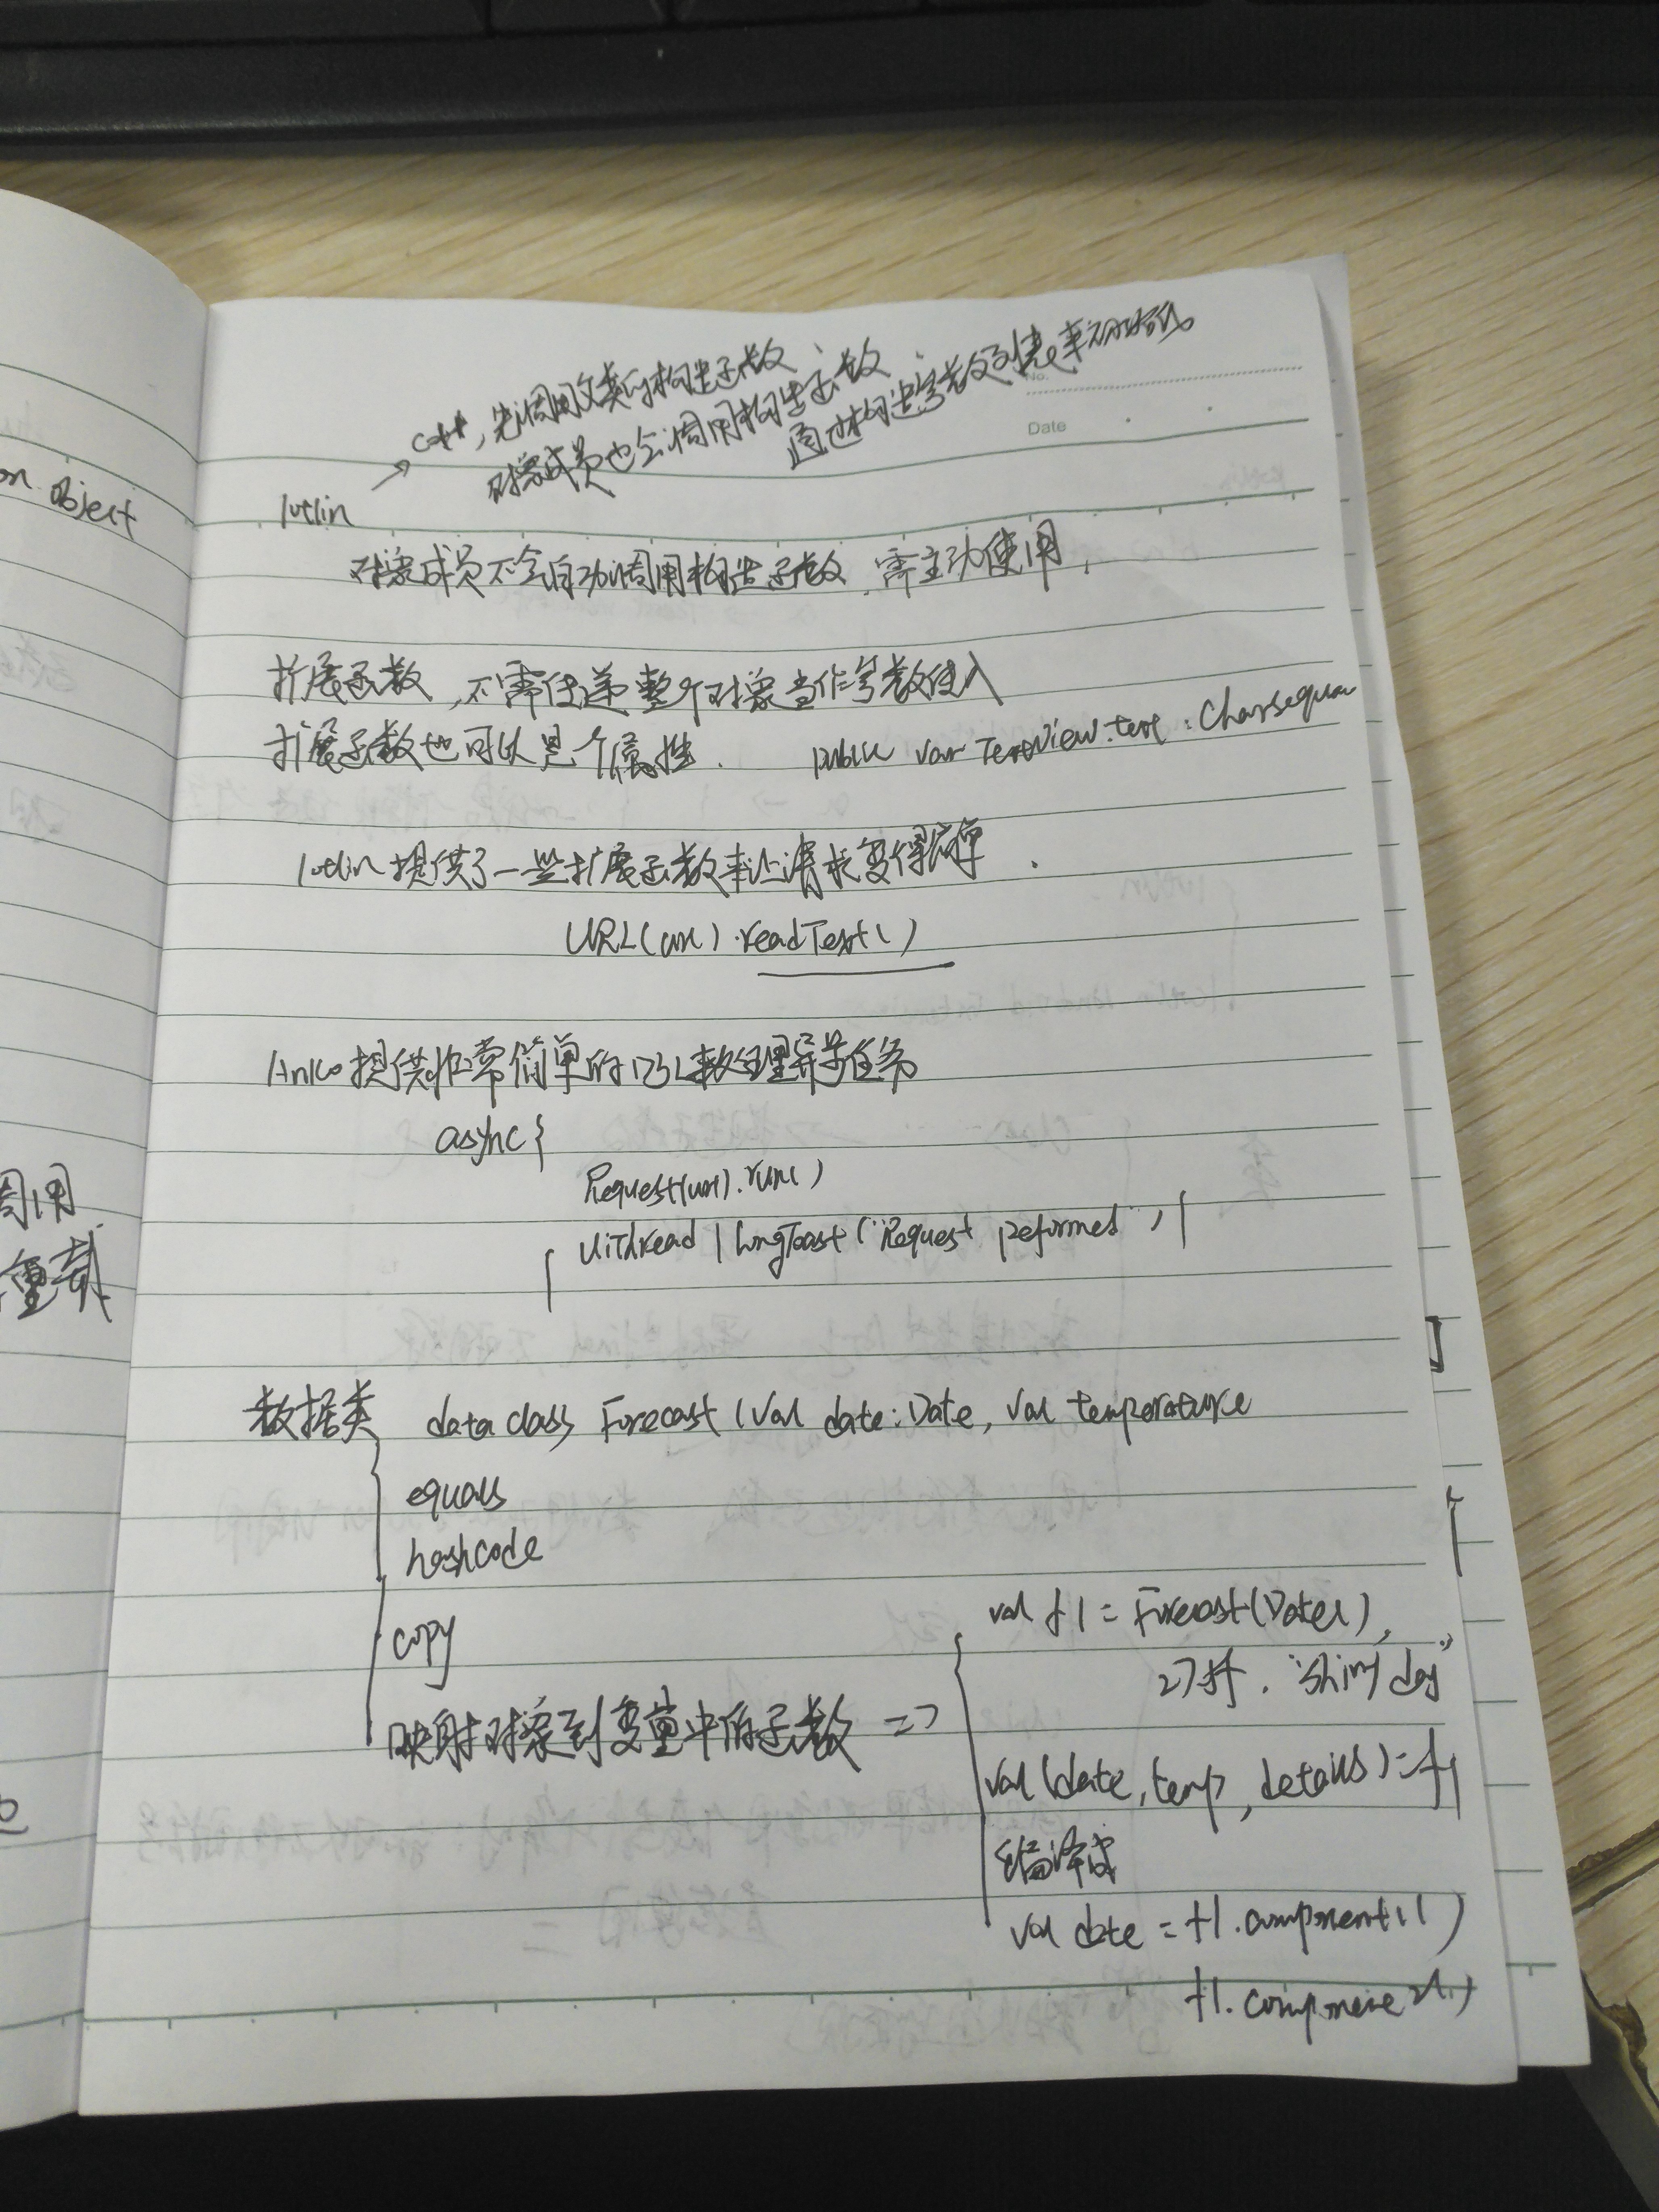 on object
周用
重载
No.
Date
C++, 先调用父类的构造函数、
对象成员也会调用构造函数.
通过构造参数列表来初始化。
kotlin
对象成员不会自动调用构造函数,需主动使用,
扩展函数,不需传递整个对象当作参数传入
扩展函数也可以是个属性. public var TextView.text : Charsequen
kotlin提供了一些扩展函数来让请求变得简单.
URL(url).readText()
Anko提供非常简单的DSL来处理异步任务
async {
Request(url).run()
uiThread { longToast("Request peformed") }
}
数据类 data class Forecast (val date: Date, val temperature
equals
hashcode
copy
映射对象到变量中的函数 =>
val f1 = Forecast(Date(),
27.5f, "Shiny day"
val (date, temp, details) = f1
编译成
val date = f1.component1()
f1.component2()